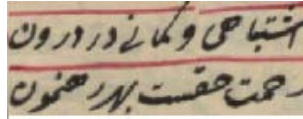 اشتباهی و گمانے در درون
رحمت حقست بهر رهنمون